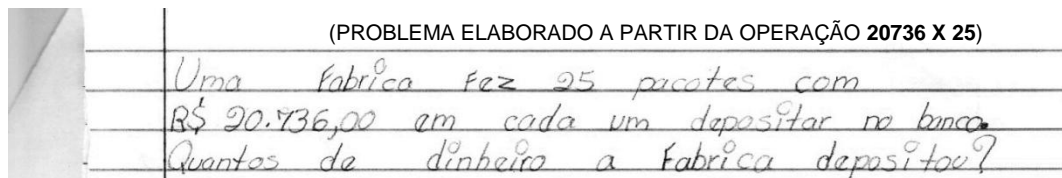 (PROBLEMA ELABORADO A PARTIR DA OPERAÇÃO 20736 X 25)
Uma Fabrica Fez 25 pacotes com
R$ 20.736,00 em cada um depositar no banco.
Quantos de dinheiro a Fabrica depositou?